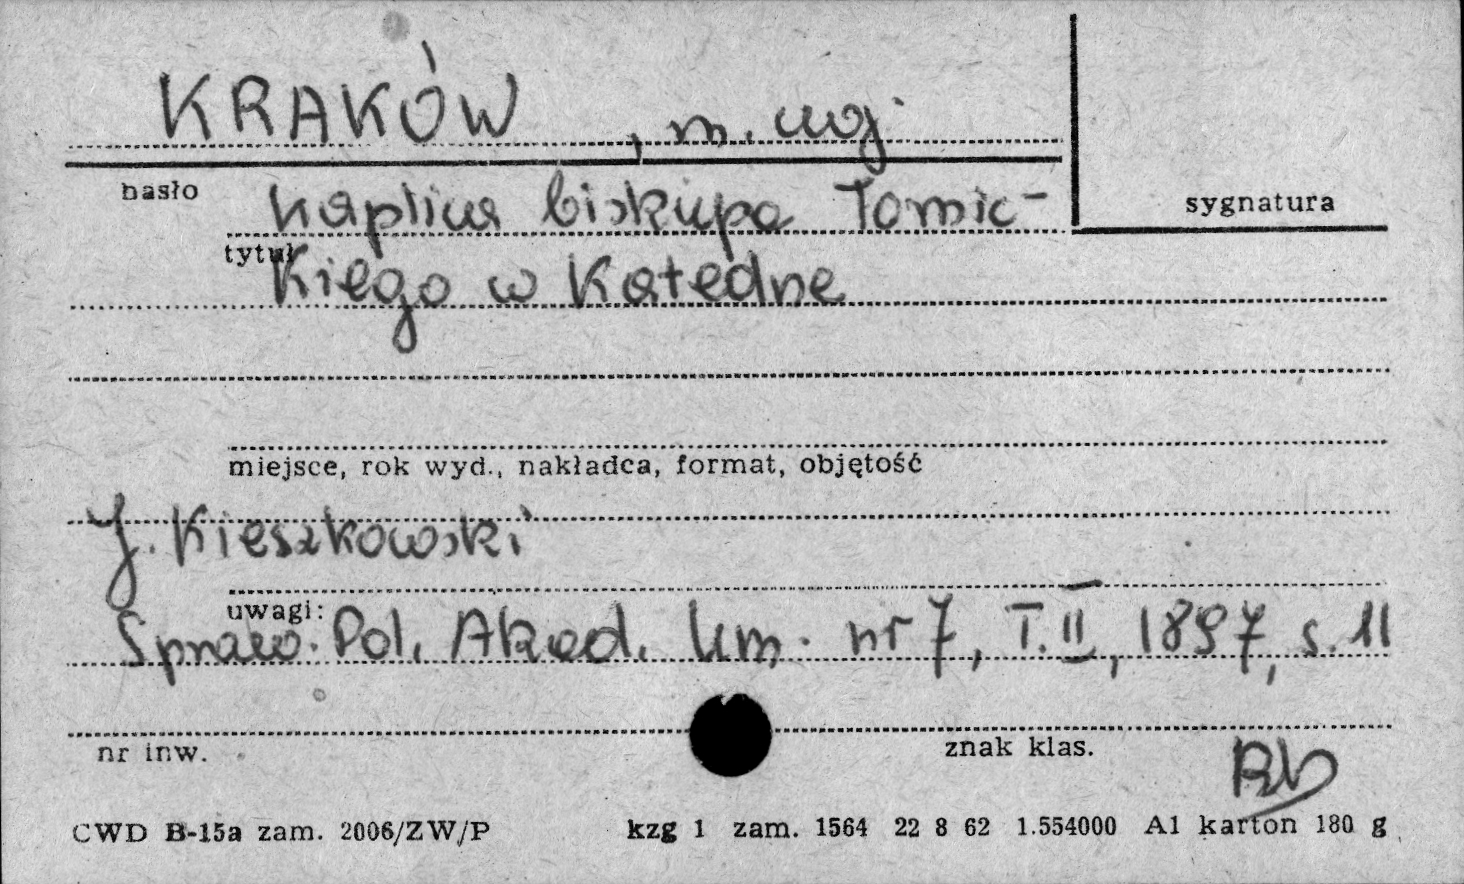 KRAKÓW, m. woj.
hasło
kaplica biskupa Tomic-
sygnatura
tytuł
kiego w Katedrze
miejsce, rok wyd., nakładca, format, objętość
J. Kieszkowski
uwagi:
Spraw. Pol. Akad. Um. nr 7, T. II, 1897, s. 11
nr inw.
znak klas.
CWD B-15a zam. 2006/ZW/P kzg 1 zam. 1564 22 8 62 1.554000 A1 karton 180 g